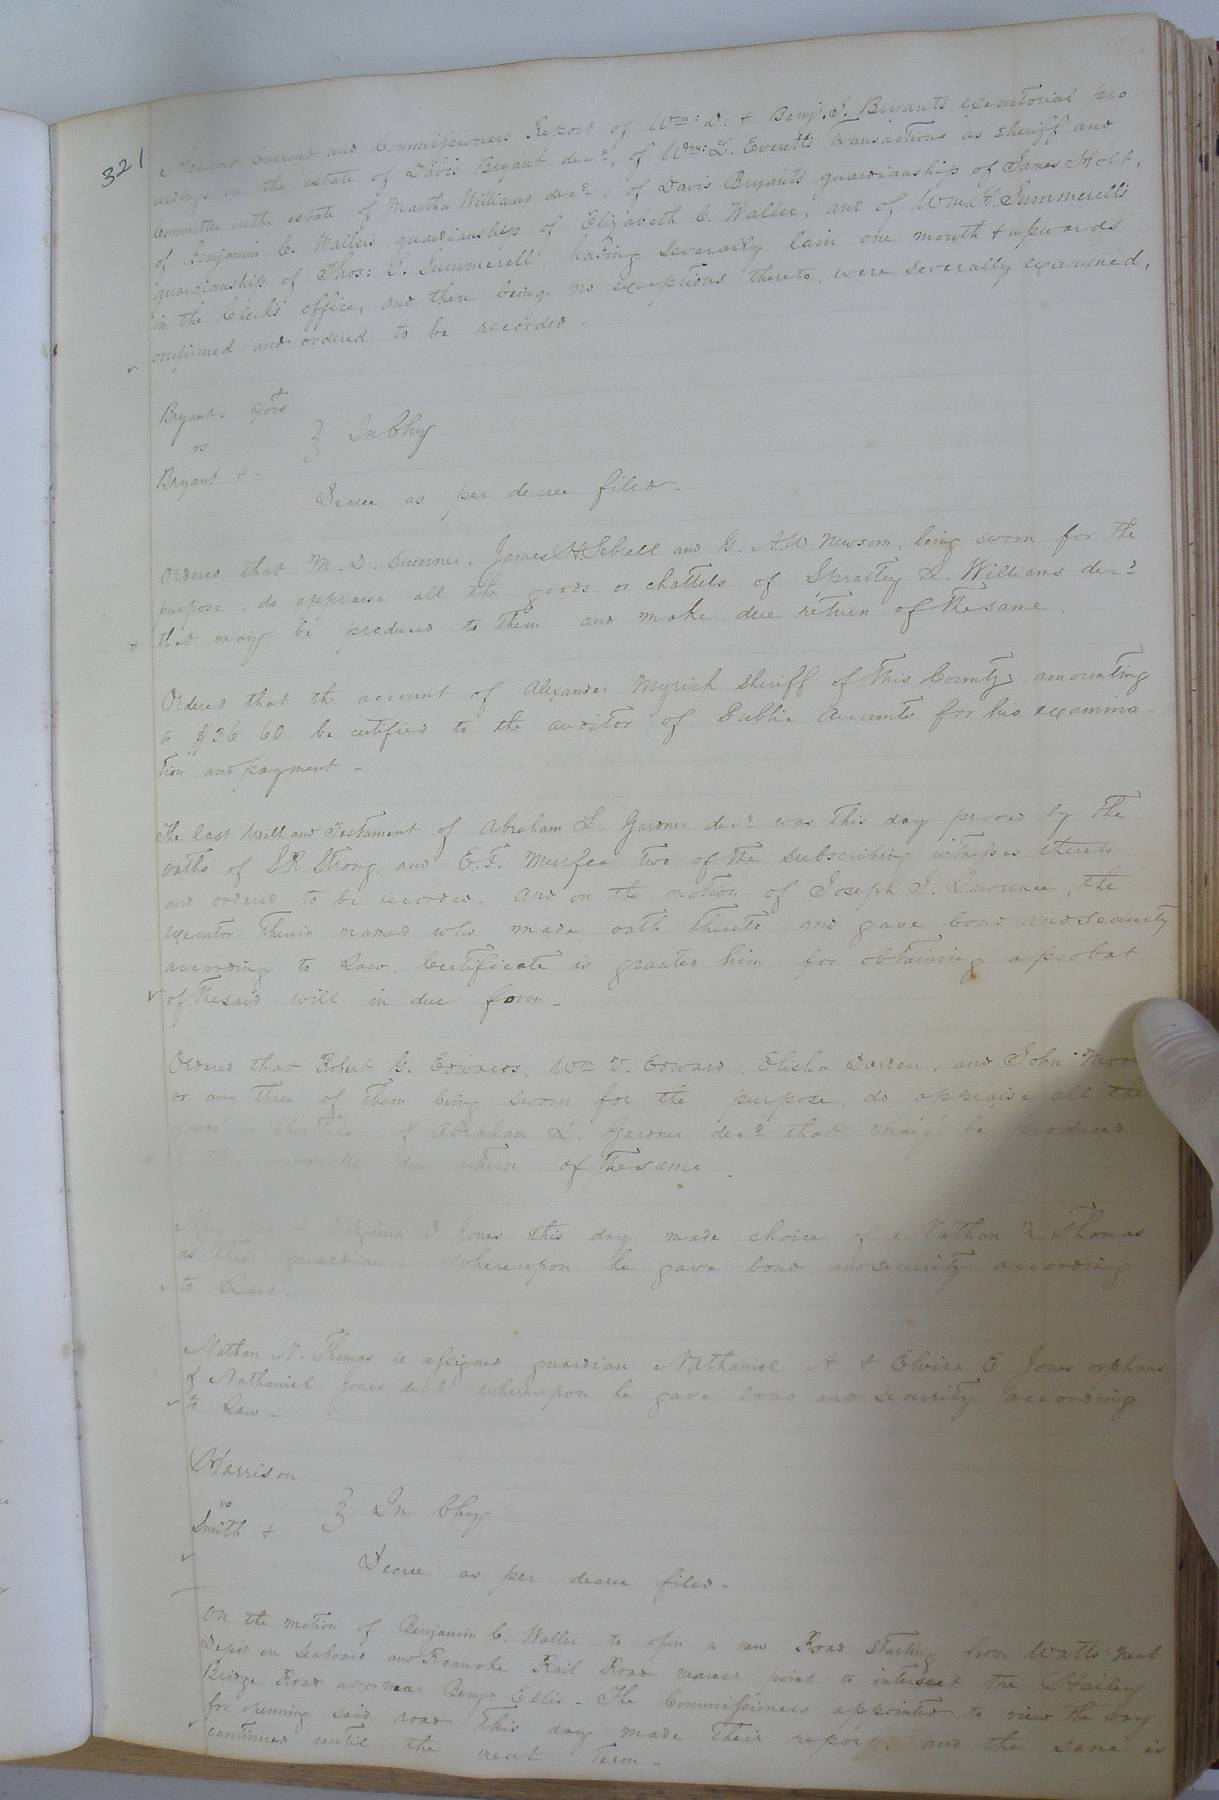 321
Account Current and Commissioners Report of Wm: D. & Benj. J. Bryants executorial pro
ceedings on the estate of Davis Bryant decd, of Wm: L. Everetts transactions as sheriff and
Committee on the estate of Martha Williams decd, of Davis Bryants guardianship of James Holt,
of Benjamin C. Wallers guardianship of Elizabeth C. Waller, and of Wm. H. Summerells
guardianship of Thos: S. Summerell, having severally lain one month & upwards
in the Clerks office, and there being no exceptions thereto, were severally examined,
confirmed and ordered to be recorded.
Bryants Exors
vs
Bryant &
} In Chy
Decree as per decree filed -
Ordered that M. D. James H. Sebrell and G. A. W. Newsom, being sworn for the
purpose, do appraise all the goods or chattels of Spratley L. Williams decd
that may be produced to them and make due return of the same.
Ordered that the account of Alexander Myrick Sheriff of this County, amounting
to $36.60 be certified to the auditor of Public Accounts for his examina-
tion and payment -
The last Will and Testament of Abraham L. Gardner decd was this day proved by the
oaths of S. R. Strong and E. F. Murfee two of the subscribing witnesses thereto
and ordered to be recorded. And on the motion of Joseph J. Lawrence, the
executor therein named who made oath thereto and gave bond and security
according to Law. Certificate is granted him for obtaining a probat
of the said will in due form -
Ordered that Robert G. Edwards, Wm V. Edward, Elisha Darden, and John
or any three of them being sworn for the purpose, do appraise all the
goods or chattels of Abraham L. Gardner decd that may be produced
to them and make due return of the same.
Mary Ann & Virginia O. Jones this day made choice of Nathan N. Thomas
as their guardian. Whereupon he gave bond and security according
to Law.
Nathan N. Thomas is assigned guardian Nathaniel A & Elvira E. Jones orphans
of Nathaniel Jones decd whereupon he gave bond and security according
to Law -
Harrison
vs
Smith &
} In Chy
Decree as per decree filed -
On the motion of Benjamin C. Waller to open a new Road starting from Watts next
Depot on Seaboard and Roanoke Rail Road nearest point to intersect the Hailey
Bridge Road at or near Benja Ellis - The Commissioners appointed to view the way
for openning said road this day made their report, and the same is
continued until the next Term -